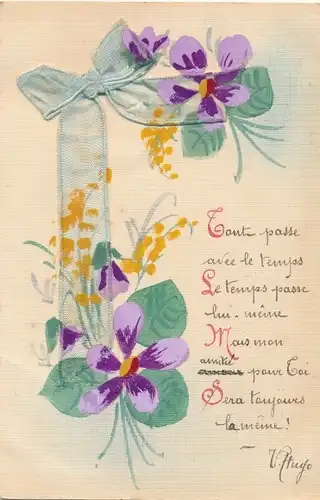 Tout passe
avec le temps
Le temps passe
lui-même
Mais mon
amitié
amour pour Toi
Sera toujours
la même !
V. Hugo